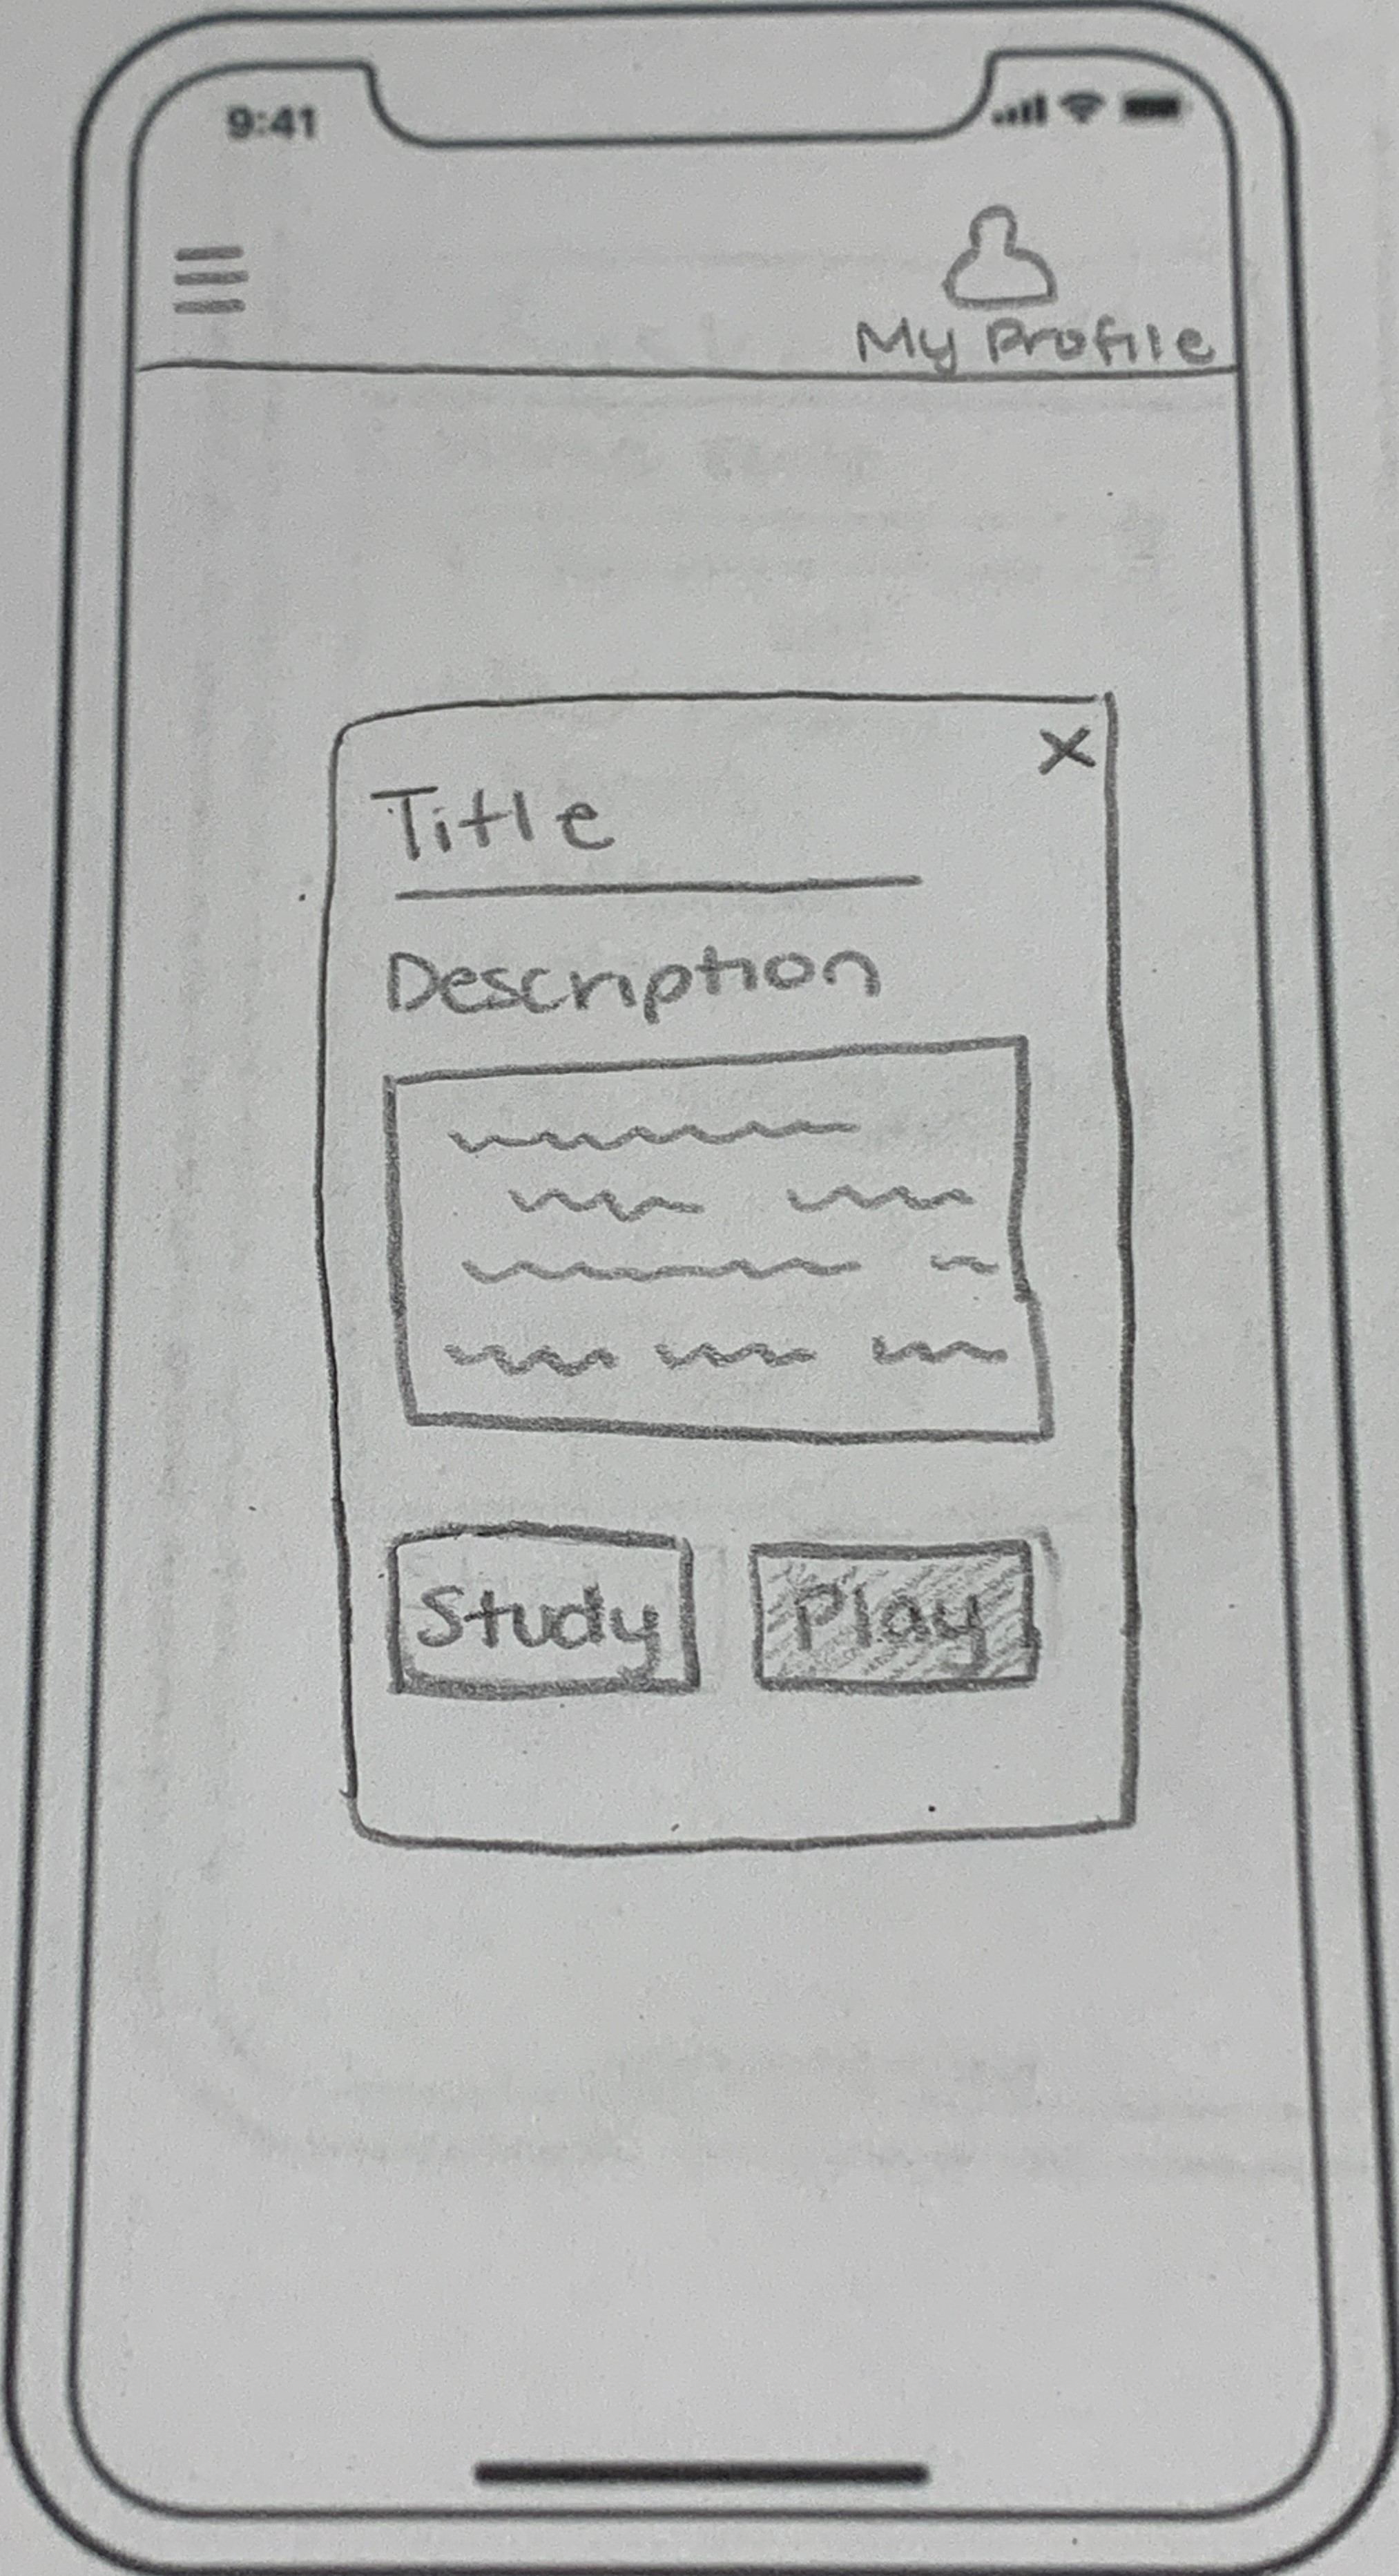 9:41
My Profile
X
Title
Description
Study Play